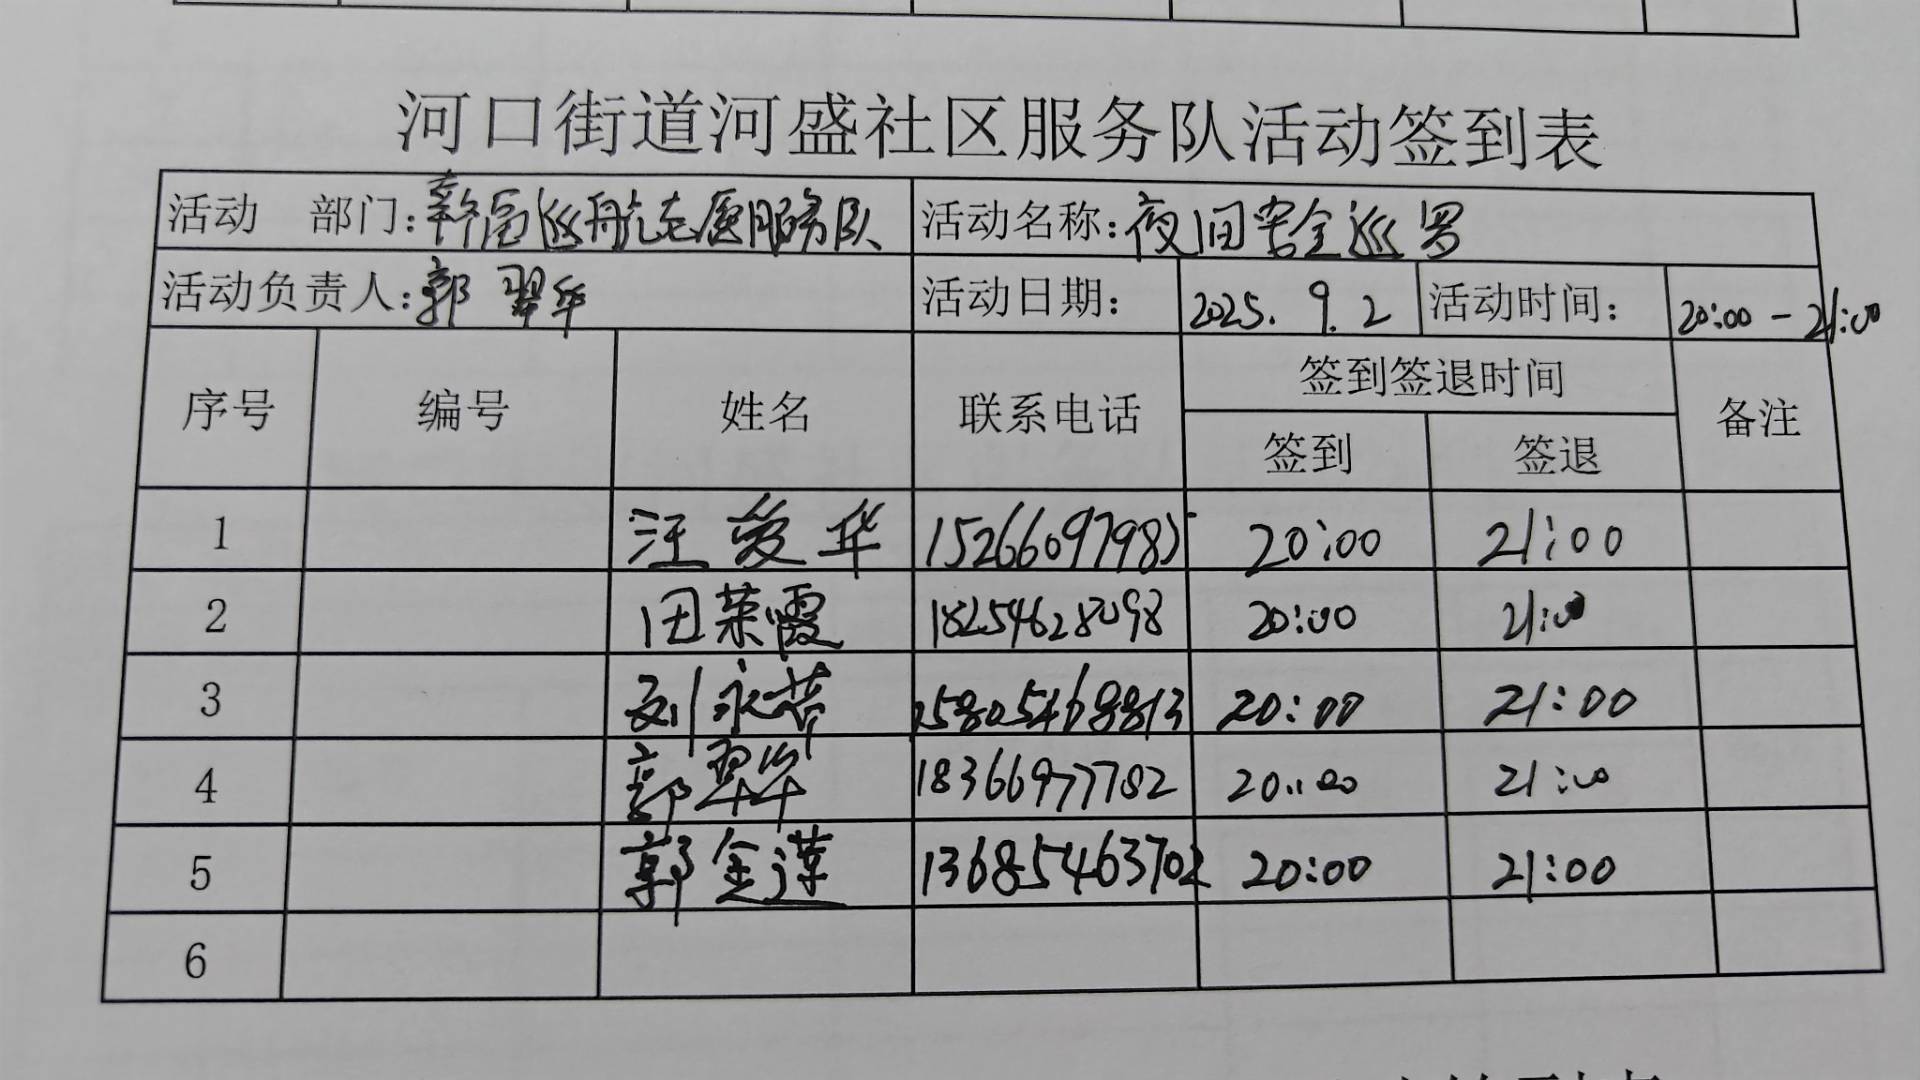 河口街道河盛社区服务队活动签到表
活动 部门: 巡航志愿服务队 活动名称: 夜间安全巡罗
活动负责人: 郭翠华 活动日期: 2025. 9. 2 活动时间: 20:00 - 21:00
序号 编号 姓名 联系电话 签到签退时间 备注
签到 签退
1 汪爱华 15266097985 20:00 21:00
2 田荣霞 18254628098 20:00 21:00
3 刘永芹 15805468813 20:00 21:00
4 郭翠华 18366977782 20:00 21:00
5 郭金莲 13685463702 20:00 21:00
6